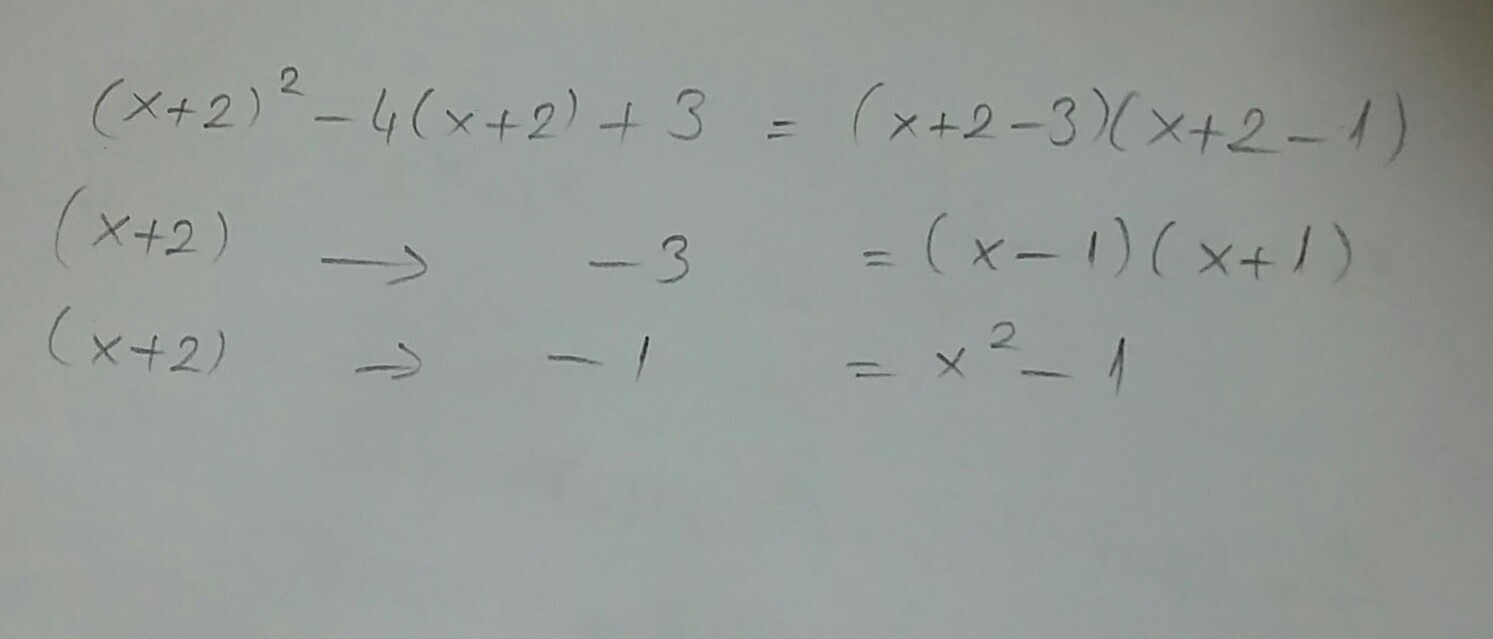 (x+2)² - 4(x+2) + 3 = (x+2-3)(x+2-1)
(x+2) → -3 = (x-1)(x+1)
(x+2) → -1 = x² - 1